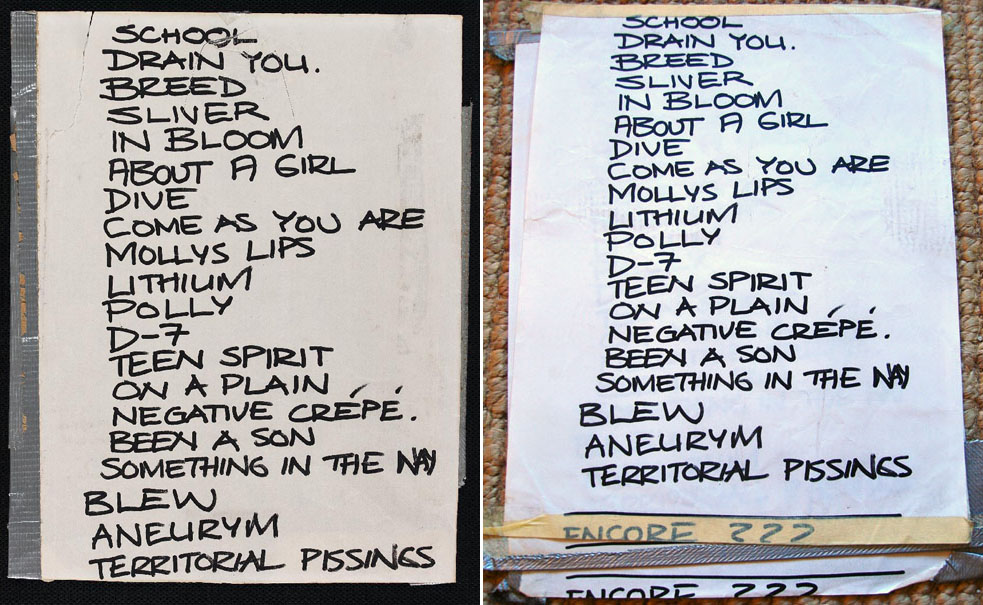 SCHOOL
DRAIN YOU.
BREED
SLIVER
IN BLOOM
ABOUT A GIRL
DIVE
COME AS YOU ARE
MOLLYS LIPS
LITHIUM
POLLY
D-7
TEEN SPIRIT
ON A PLAIN
NEGATIVE CRÉPÉ.
BEEN A SON
SOMETHING IN THE WAY
BLEW
ANEURYM
TERRITORIAL PISSINGS
SCHOOL
DRAIN YOU.
BREED
SLIVER
IN BLOOM
ABOUT A GIRL
DIVE
COME AS YOU ARE
MOLLYS LIPS
LITHIUM
POLLY
D-7
TEEN SPIRIT
ON A PLAIN
NEGATIVE CRÉPÉ.
BEEN A SON
SOMETHING IN THE WAY
BLEW
ANEURYM
TERRITORIAL PISSINGS
ENCORE ???
ENCORE ???